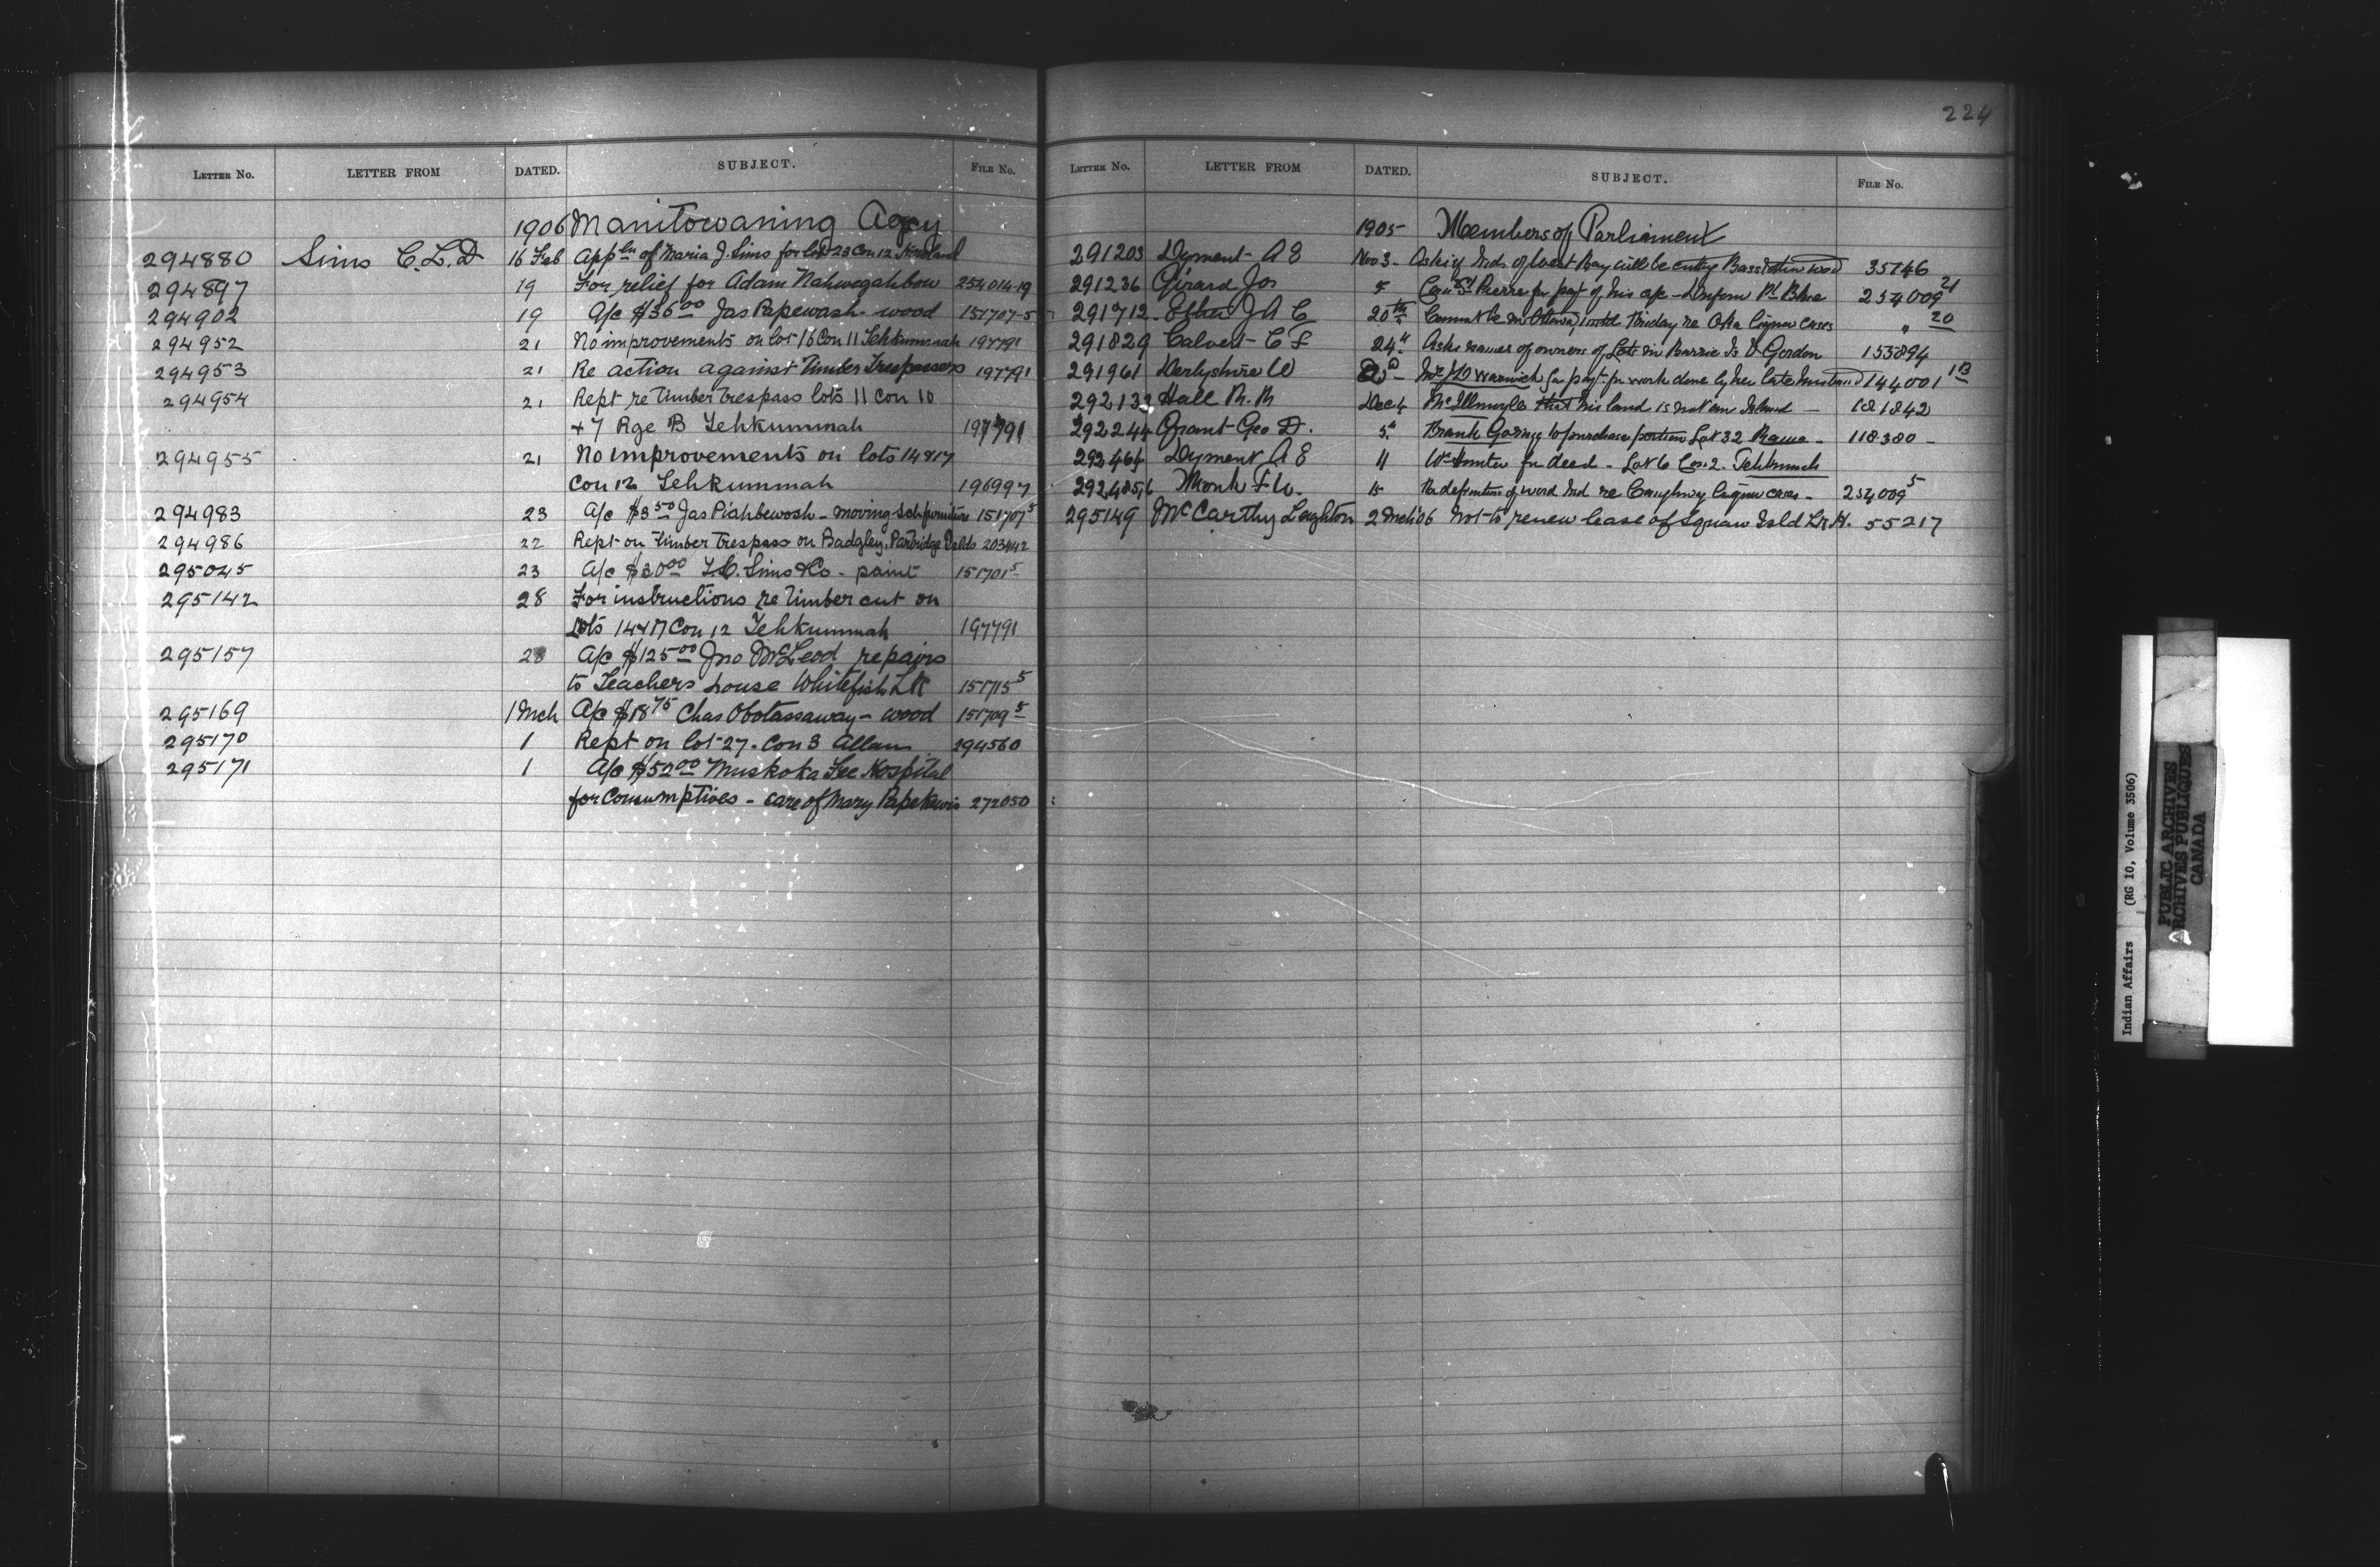 224
LETTER No. LETTER FROM DATED. SUBJECT. FILE No.
1906 Manitowaning Agcy
294880 Sims C.L.D 16 Feb Appln of Maria J. Sims for lot 23 Con 12
294897 19 For relief for Adam Nahwegahbow 254014-19
294902 19 A/c $36.00 Jas Papewash - wood 151707-5
294952 21 No improvements on lot 16 Con 11 Tehkummah 197791
294953 21 Re action against Timber Trespassers 197791
294954 21 Rept re Timber trespass lots 11 con 10
+ 7 Rge B Tehkummah 197791
294955 21 No improvements on lots 14 & 17
Con 12 Tehkummah 196997
294983 23 A/c $3.50 Jas Piahbewosh - moving sch furniture 151707 5
294986 22 Rept on Timber trespass on Badgley, Partridge Islds 203442
295045 23 A/c $30.00 Sims & Co - paint 151701 5
295142 28 For instructions re Timber cut on
Lots 14 & 17 Con 12 Tehkummah 197791
295157 28 A/c $125.00 Jno McLeod repairs
to Teachers house Whitefish LK 151715 5
295169 1 Mch A/c $18.75 Chas Obotassaway - wood 151709 5
295170 1 Rept on lot 27. Con 3 Allan 294560
295171 1 A/c $52.00 Muskoka Fee Hospital
for Consumptives - care of Mary Papekewis 272050
LETTER No. LETTER FROM DATED. SUBJECT. FILE No.
1905 Members of Parliament
291203 Dyment A E Nov 3 - Ask if Inds of West Bay will be cutting Bass & other wood
291236 Girard Jos St Pierre for payt of his a/c - Pt Blue 254009 21
291712 J A C 20th Cannot be in Ottawa until Friday re Oka liquor cases " 20
291829 Calvert C F 24" Asks names of owners of Lots in Barrie Is D Gordon 153894
291961 Derbyshire W Mrs Warwick for payt for work done by her late husband 144001 13
292133 Hall R. R Dec 4 McIllmoyle that his land is not an Island - 181842
292244 Grant Geo D. 5" Frank Goring to purchase portion Lot 32 Rama - 118.380 -
292464 Dyment A E 11 Wm Hunter for deed - Lot 6 Con. 2. Tehkummah
Monk F W. 15 Re definition of word Ind re Caughnawaga liquor cases - 254009 5
295149 McCarthy Leighton 2 Mch 06 Not to renew lease of Squaw Isld Lr H. 55217
Indian Affairs (RG 10, Volume 3506)
PUBLIC ARCHIVES
ARCHIVES PUBLIQUES
CANADA